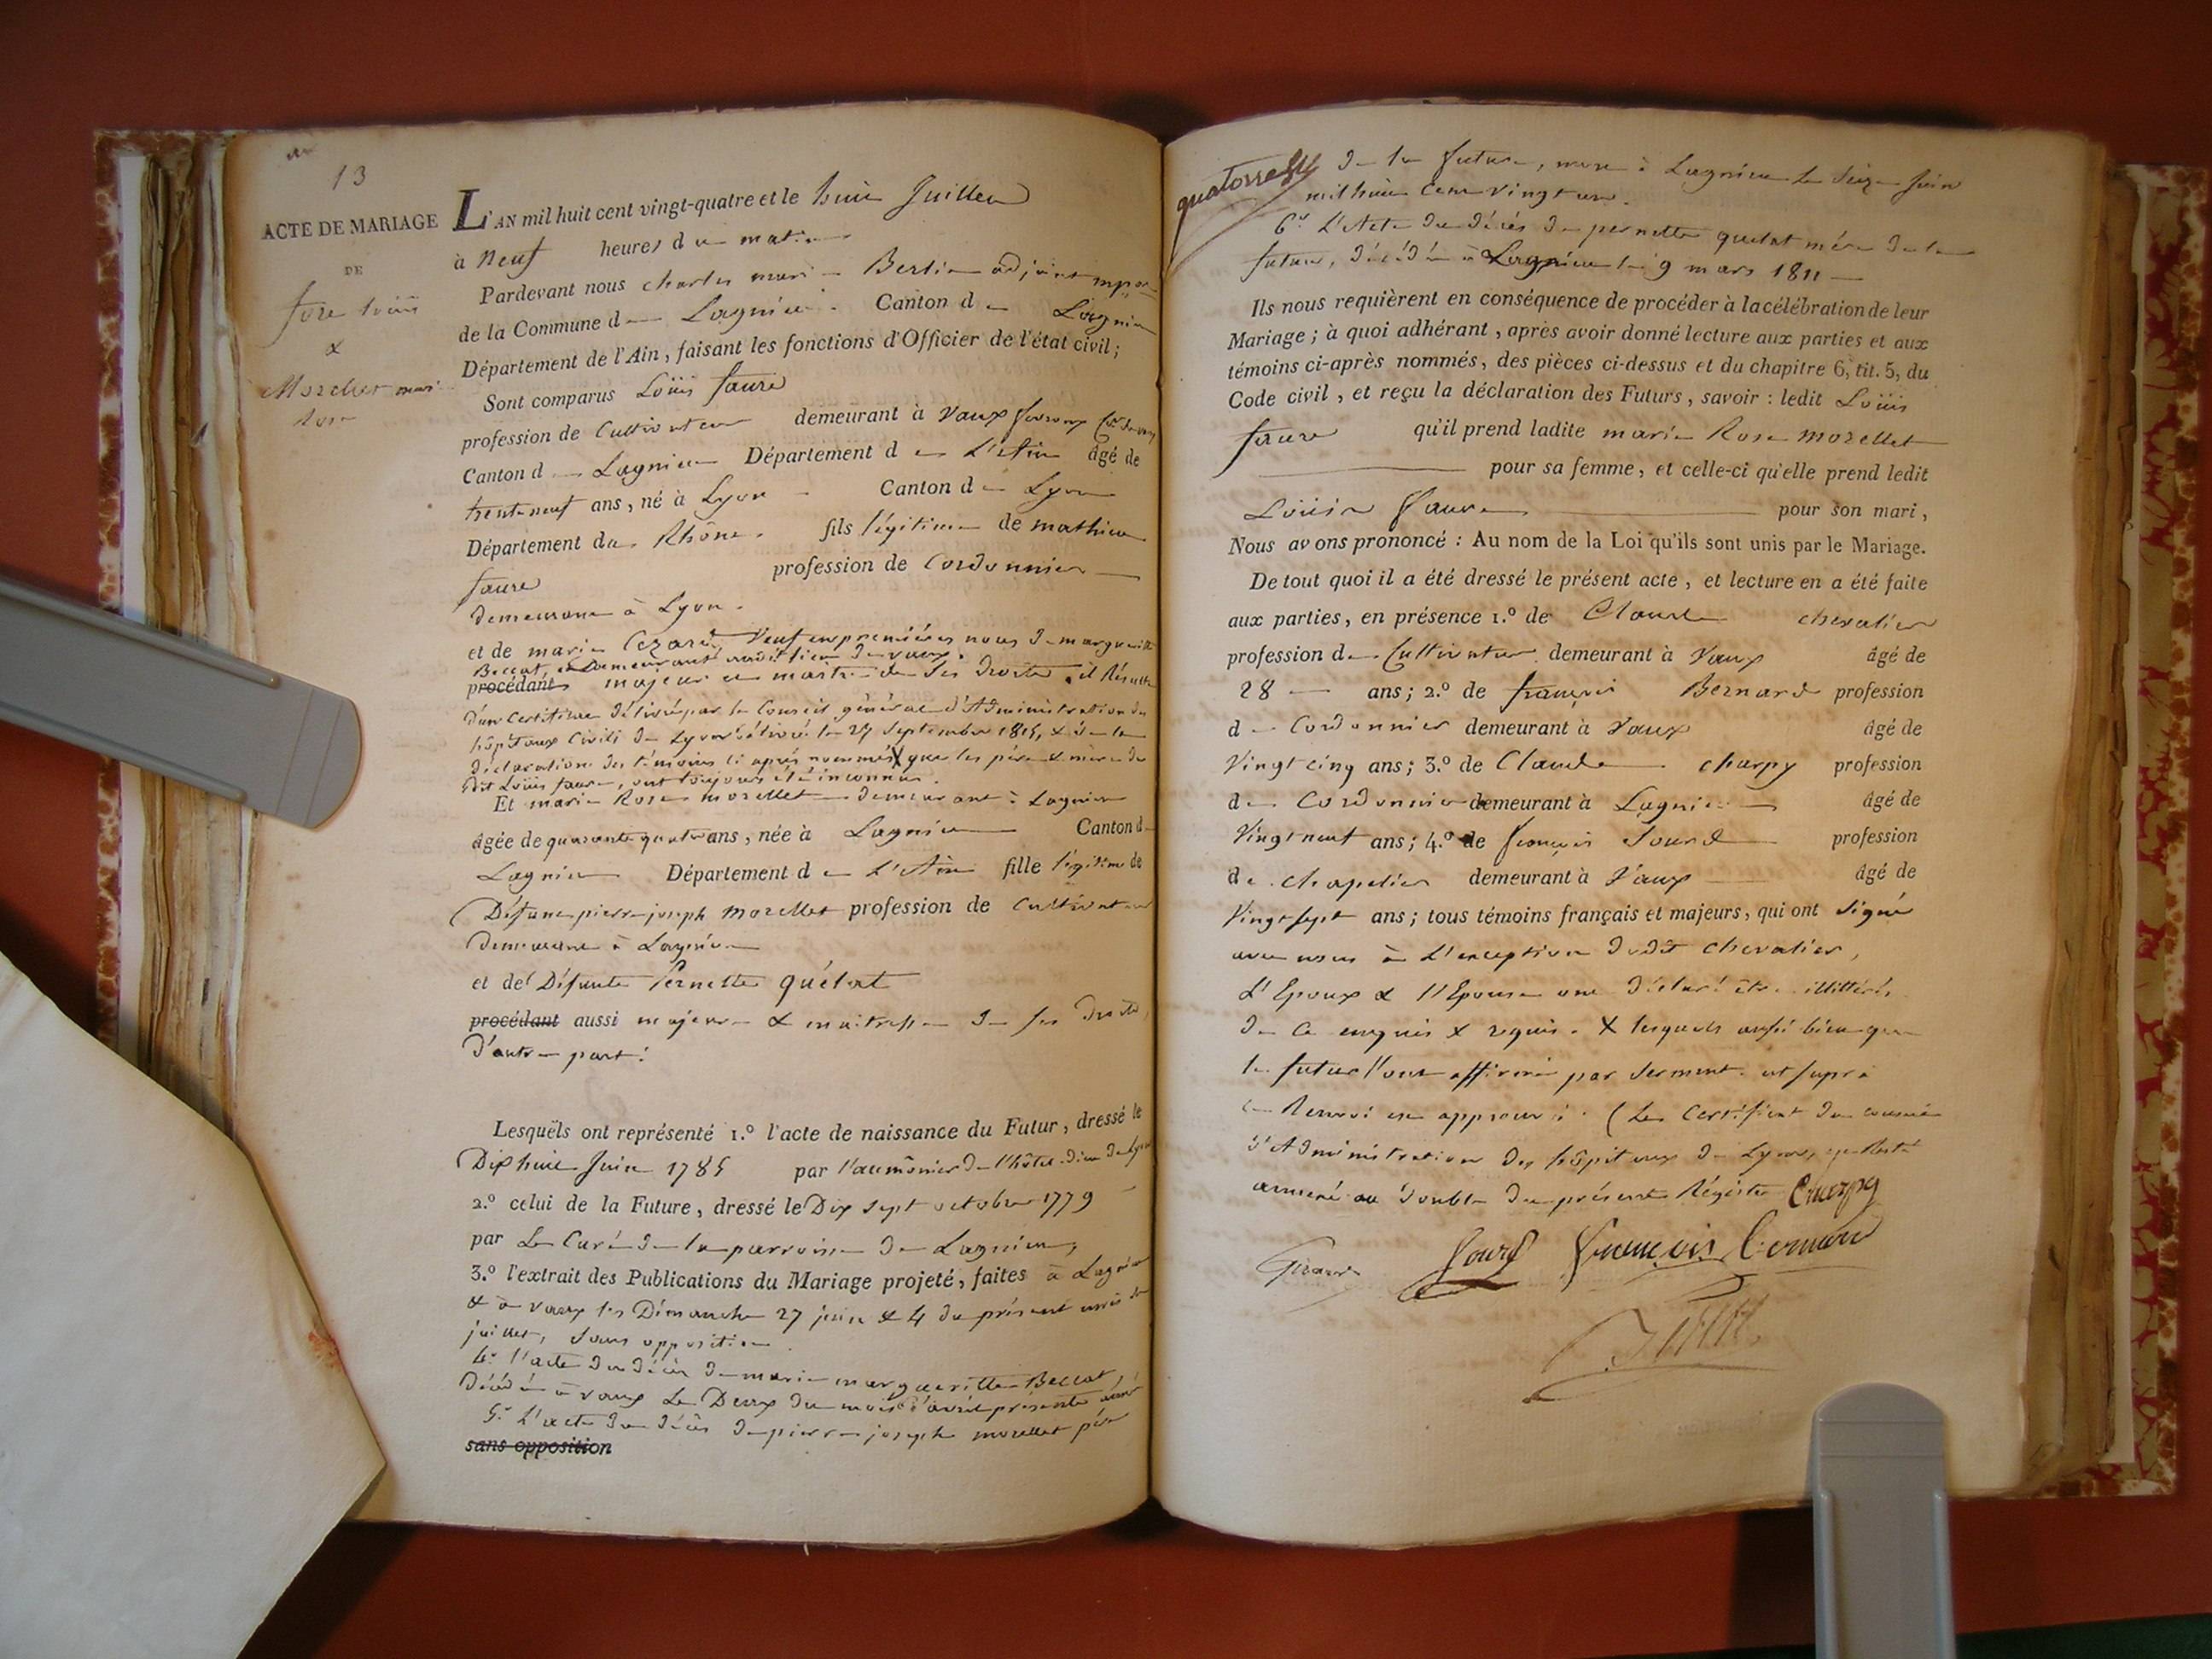 13
ACTE DE MARIAGE
DE
fore Loüis
&
Morellet mari
rose
L'AN mil huit cent vingt-quatre et le huit Juillet
à neuf heures du matin
Pardevant nous charles marie Berlie adjoint
de la Commune de Lagnieu Canton de Lagnieu
Département de l'Ain, faisant les fonctions d'Officier de l'état civil;
Sont comparus Loüis faure
profession de Cultivateur demeurant à Vaux
Canton de Lagnieu Département de L'Ain âgé de
trente neuf ans, né à Lyon Canton de Lyon
Département du Rhône fils légitime de mathieu
faure profession de Cordonnier
demeurant à Lyon.
et de marie Cezard, Veuf en premières noces de marguerite
Beccat, et Demeurant audit lieu de vaux.
procédant majeur et maitre de ses droits, il Résulte
d'un Certificat délivré par le Conseil général d'Administration des
hôpitaux Civils de Lyon délivré le 27 Septembre 1815, & de la
déclaration des témoins ci après nommés X que les père & mère du
dit Loüis faure, ont toujours été inconnus.
Et marie Rose morellet demeurant à Lagnieu
âgée de quarante quatre ans, née à Lagnieu Canton de
Lagnieu Département de L'Ain fille légitime de
Défunt pierre joseph morellet profession de Cultivateur
demeurant à Lagnieu
et de Défunte Pernette quélat
procédant aussi majeure & maitresse de ses droits,
d'autre part.
Lesquels ont représenté 1.º l'acte de naissance du Futur, dressé le
Dix huit Juin 1785 par l'aumônier de l'hôtel-dieu de Lyon
2.º celui de la Future, dressé le Dix sept octobre 1779
par Le Curé de la parroisse de Lagnieu,
3.º l'extrait des Publications du Mariage projeté, faites à Lagnieu
& à vaux les Dimanche 27 juin & 4 du présent mois de
juillet, sans opposition
4.º l'acte du décès de marie marguerite Beccat,
décédée à vaux Le Deux du mois d'avril présente année
5.º L'acte du décès de pierre joseph morellet père
sans opposition
de la future, mort à Lagnieu le Seize Juin
mil huit cent vingt un.
6.º L'Acte du décès de pernette quelat mère de la
future, décédée à Lagnieu le 9 mars 1811
Ils nous requièrent en conséquence de procéder à la célébration de leur
Mariage; à quoi adhérant, après avoir donné lecture aux parties et aux
témoins ci-après nommés, des pièces ci-dessus et du chapitre 6, tit. 5, du
Code civil, et reçu la déclaration des Futurs, savoir: ledit Loüis
faure qu'il prend ladite marie Rose morellet
pour sa femme, et celle-ci qu'elle prend ledit
Loüis Faure pour son mari,
Nous avons prononcé: Au nom de la Loi qu'ils sont unis par le Mariage.
De tout quoi il a été dressé le présent acte, et lecture en a été faite
aux parties, en présence 1.º de Claude chevalier
profession de Cultivateur demeurant à Vaux âgé de
28 ans; 2.º de françois Bernard profession
de Cordonnier demeurant à Vaux âgé de
Vingt cinq ans; 3.º de Claude charpy profession
de Cordonnier demeurant à Lagnieu âgé de
Vingt neuf ans; 4.º de françois Sourd profession
de chapelier demeurant à Vaux âgé de
Vingt sept ans; tous témoins français et majeurs, qui ont signé
avec nous à L'exception dudit chevalier,
L'Epoux & l'Epouse ont déclaré être illittérés
de ce enquis & requis. X lesquels aussi bien que
le futur l'ont affirmé par serment. ut supra
le Renvoi est approuvé. (Le Certificat du conseil
d'Administration des hôpitaux de Lyon, est Resté
annexé au double du présent Régistre Charpy
Sourd françois bernard